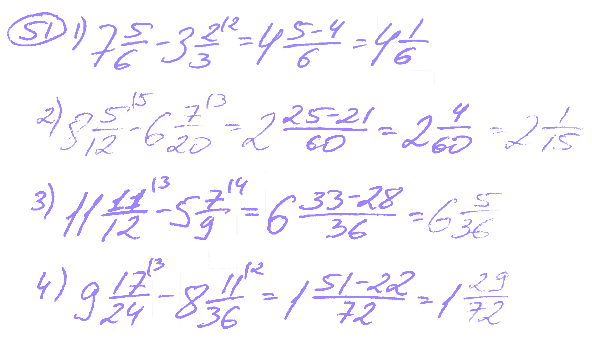 51 1) 7 5/6 - 3 2/3 \2 = 4 5-4/6 = 4 1/6
2) 8 5/12 \5 - 6 7/20 \3 = 2 25-21/60 = 2 4/60 = 2 1/15
3) 11 11/12 \3 - 5 7/9 \4 = 6 33-28/36 = 6 5/36
4) 9 17/24 \3 - 8 11/36 \2 = 1 51-22/72 = 1 29/72